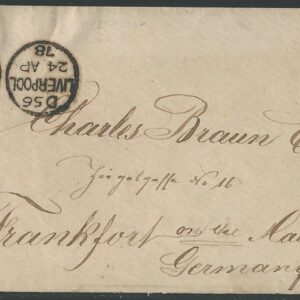 D 56
LIVERPOOL
24 AP
78
Charles Braun
Ziegelgasse No 16
Frankfort on the Ma
Germany